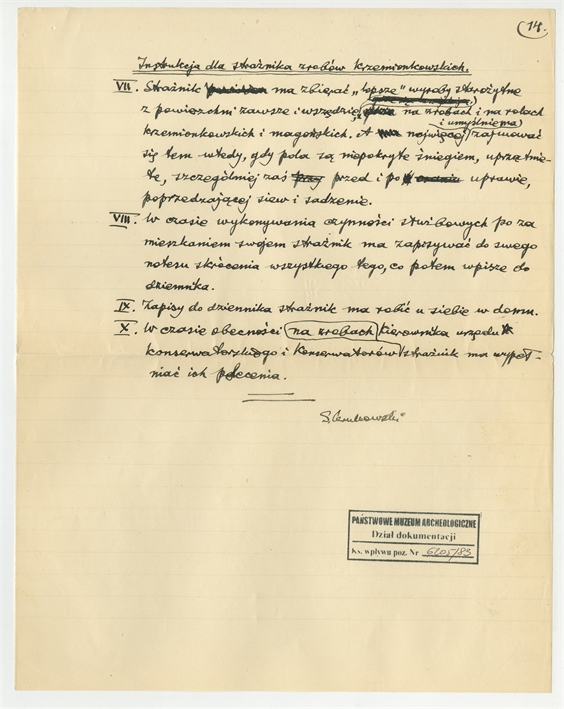 14.
Instrukcja dla strażnika zrobów Krzemionkowskich.
VII. Strażnik ma zbierać „lepsze” wyroby starożytne
z powierzchni zawsze i wszędzie, na zrobach i na rolach
i umyślnie ma
krzemionkowskich i magońskich. A najwięcej zajmować
się tem wtedy, gdy pola są niepokryte śniegiem, uprzątnię-
te, szczególniej zaś przed i po uprawie,
poprzedzającej siew i sadzenie.
VIII. W czasie wykonywania czynności służbowych po za
mieszkaniem swojem strażnik ma zapisywać do swego
notesu skrócenia wszystkiego tego, co potem wpisze do
dziennika.
IX. Zapisy do dziennika strażnik ma robić u siebie w domu.
X. W czasie obecności na zrobach Kierownika urzędu
konserwatorskiego i Konserwatorów strażnik ma wypeł-
niać ich polecenia.
PAŃSTWOWE MUZEUM ARCHEOLOGICZNE
Dział dokumentacji
Ks. wpływu poz. Nr 6205/83